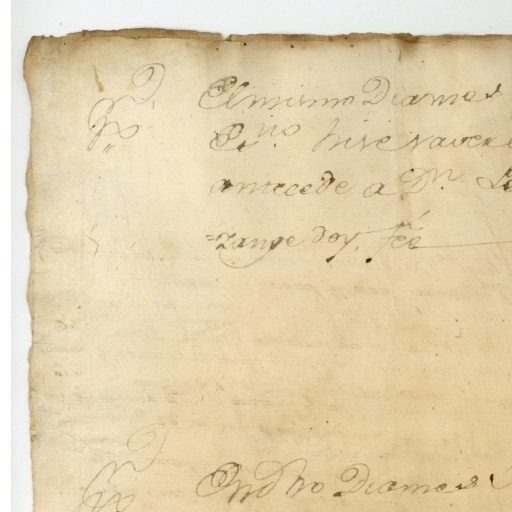 El mismo Dia mes
Es.no hise saver
antecede a Dn.
=zange doy, feé
En dho Dia mes